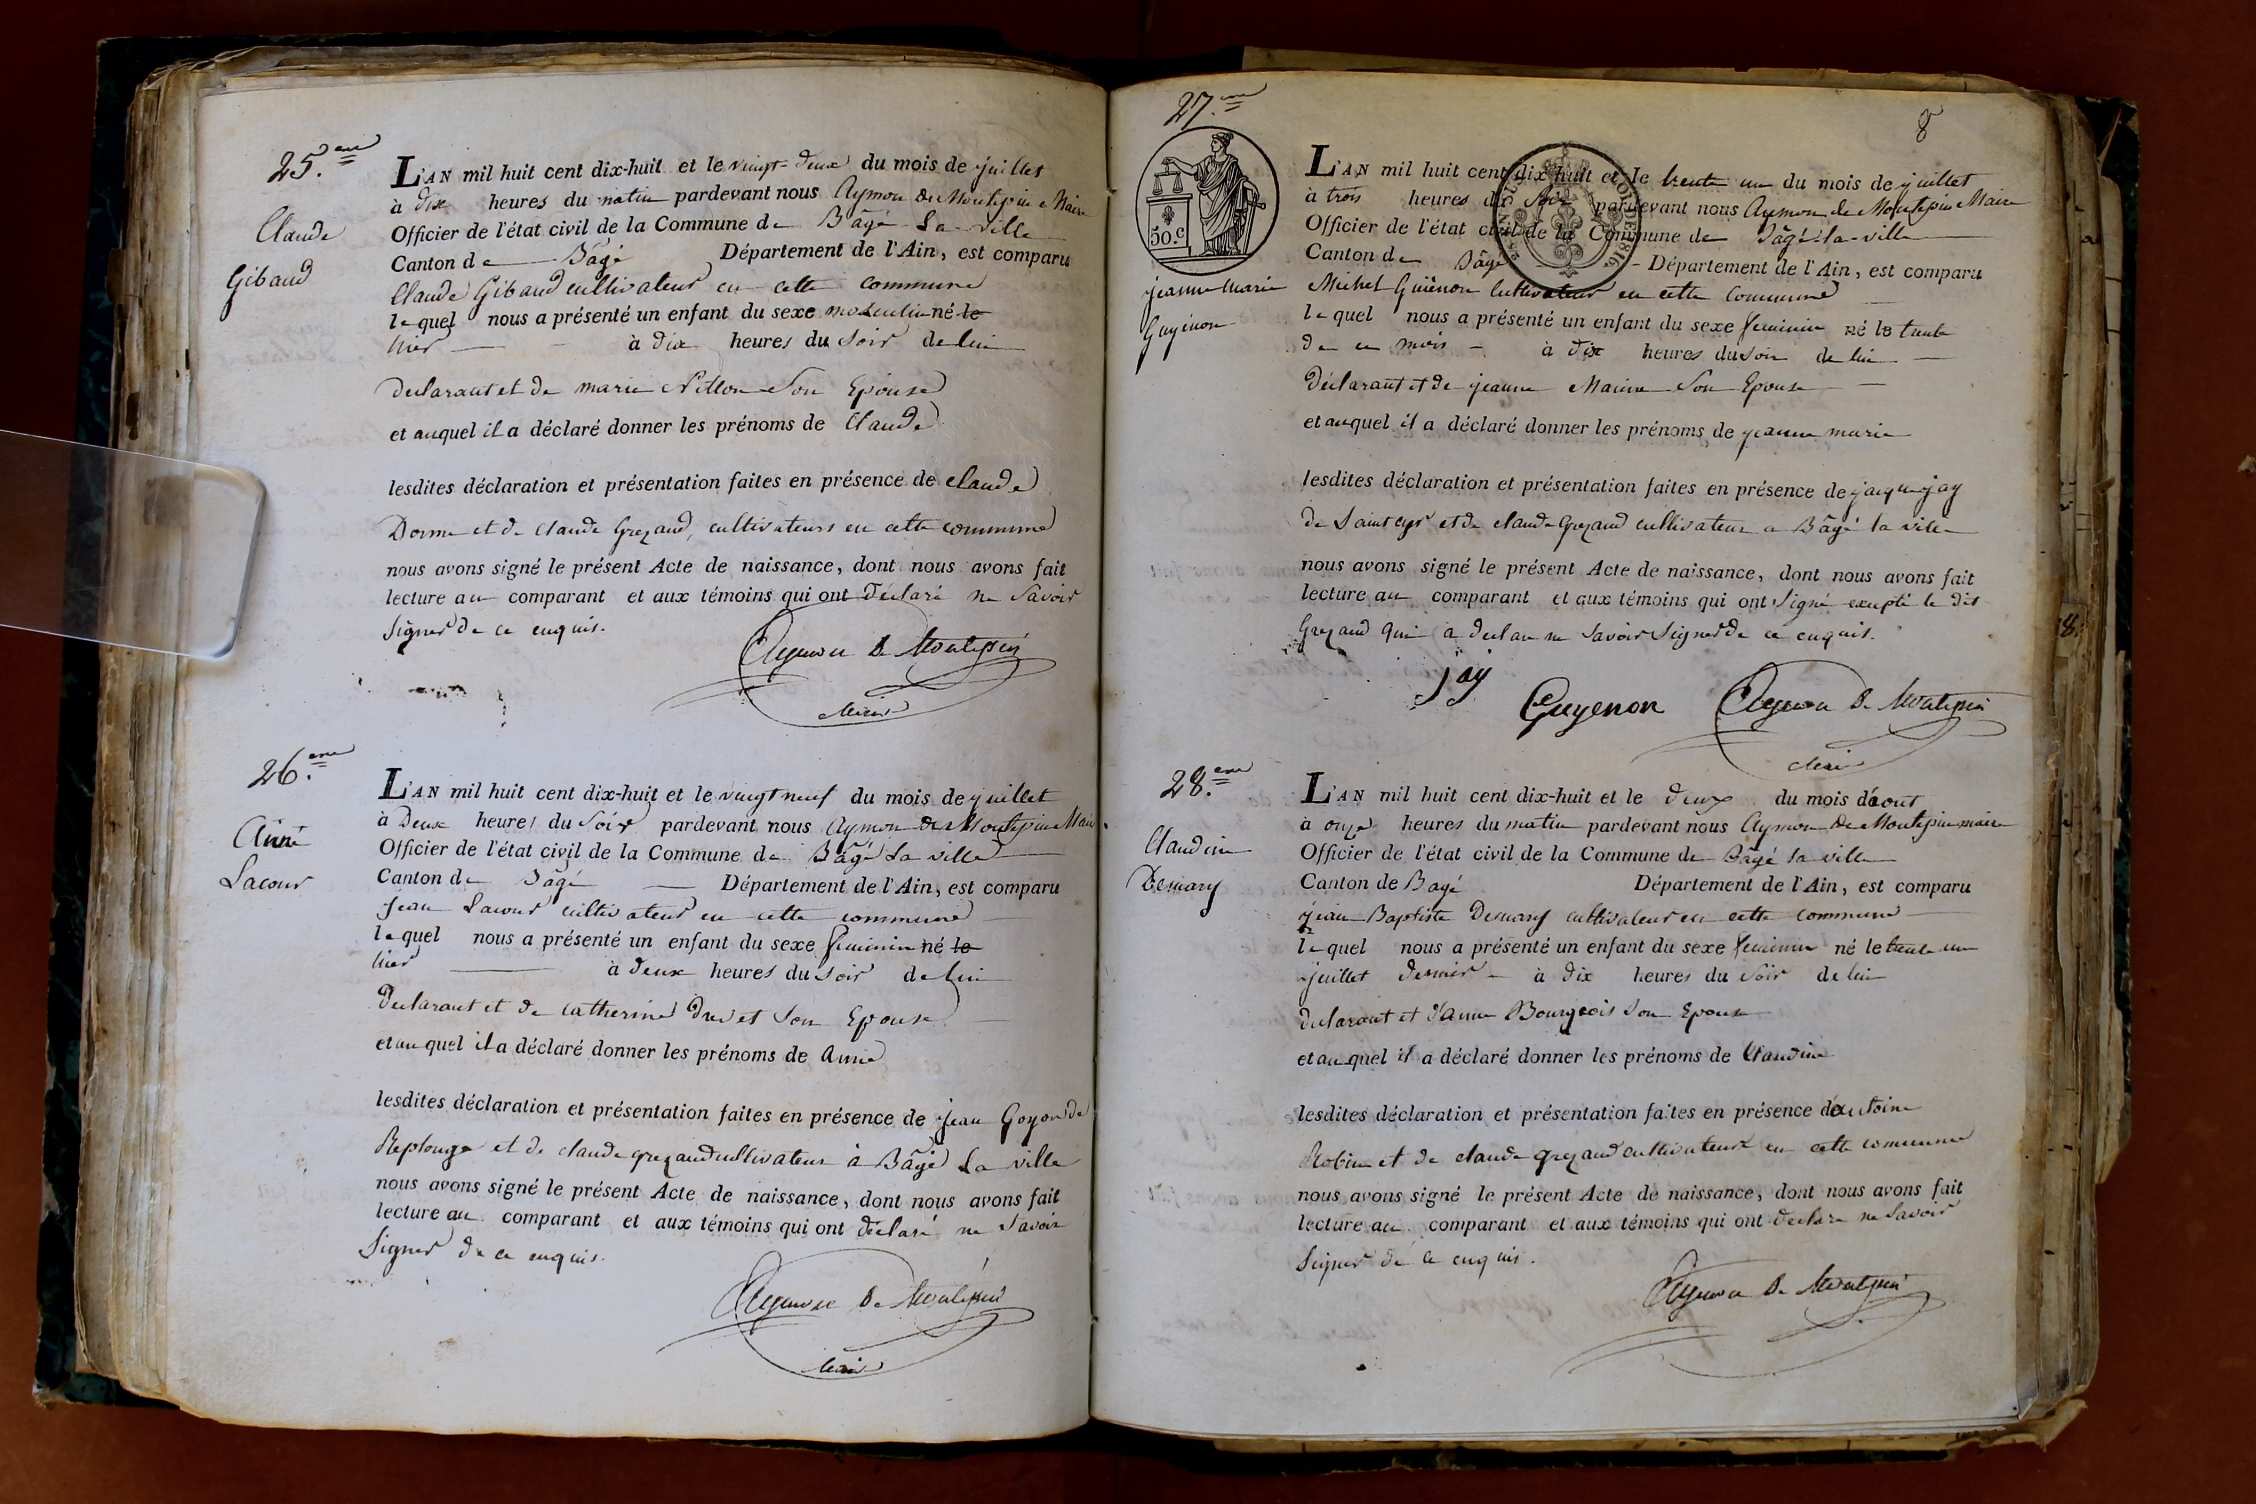 25.eme
Claude
Gibaud
L'AN mil huit cent dix-huit et le vingt-deux du mois de juillet
à dix heures du matin pardevant nous Aymon de Montepin Maire
Officier de l'état civil de la Commune de Bâgé La ville
Canton de Bâgé Département de l'Ain, est comparu
Claude Gibaud cultivateur en cette commune
lequel nous a présenté un enfant du sexe masculin né le
hier à dix heures du soir de lui
declarant et de marie son Epouse
et auquel il a déclaré donner les prénoms de Claude
lesdites déclaration et présentation faites en présence de claude
Dorme et de claude Grezaud, cultivateurs en cette commune
nous avons signé le présent Acte de naissance, dont nous avons fait
lecture au comparant et aux témoins qui ont déclaré ne savoir
signer de ce enquis.
Aymon De Montepin
Maire
26.eme
Anne
Lacour
L'AN mil huit cent dix-huit et le vingt neuf du mois de juillet
à Deux heures du soir pardevant nous Aymon de Montepin Maire
Officier de l'état civil de la Commune de Bâgé La ville
Canton de Bâgé Département de l'Ain, est comparu
jean Lacour cultivateur en cette commune
lequel nous a présenté un enfant du sexe feminin né le
hier à deux heures du soir de lui
declarant et de catherine Drevet son Epouse
et auquel il a déclaré donner les prénoms de Anne
lesdites déclaration et présentation faites en présence de jean Goyon de
Replonge et de claude grezaud cultivateur à Bâgé La ville
nous avons signé le présent Acte de naissance, dont nous avons fait
lecture au comparant et aux témoins qui ont déclaré ne savoir
signer de ce enquis.
Aymon De Montepin
Maire
8
27.eme
50.c
jeanne marie
Guyenon
L'AN mil huit cent dix huit et le trente un du mois de juillet
à trois heures du soir pardevant nous Aymon de Montepin Maire
Officier de l'état civil de la Commune de Bâgé-la-ville
Canton de Bâgé Département de l'Ain, est comparu
Michel Guienon Cultivateur en cette Commune
lequel nous a présenté un enfant du sexe feminin né le trente
de ce mois à dix heures du soir de lui
Déclarant et de jeanne Marine son Epouse
et auquel il a déclaré donner les prénoms de jeanne marie
lesdites déclaration et présentation faites en présence de jacque jay
de Saint cyr et de claude Grezaud cultivateur a Bâgé la ville
nous avons signé le présent Acte de naissance, dont nous avons fait
lecture au comparant et aux témoins qui ont signé excepté le dit
Grezaud qui a declaré ne savoir signer de ce enquis.
jay
Guyenon Aymon De Montepin
Maire
28.eme
Claudine
Desmary
L'AN mil huit cent dix-huit et le deux du mois d'aout
à onze heures du matin pardevant nous Aymon De Montepin maire
Officier de l'état civil de la Commune de Bâgé la ville
Canton de Bagé Département de l'Ain, est comparu
jean Baptiste Desmary cultivateur en cette commune
lequel nous a présenté un enfant du sexe feminin né le trente un
juillet dernier à dix heures du soir de lui
declarant et d'anne Bourgeois son Epouse
et auquel il a déclaré donner les prénoms de Claudine
lesdites déclaration et présentation faites en présence d'antoine
Robin et de claude grezaud cultivateurs en cette commune
nous avons signé le présent Acte de naissance, dont nous avons fait
lecture au comparant et aux témoins qui ont declaré ne savoir
signer de ce enquis.
Aymon De Montepin